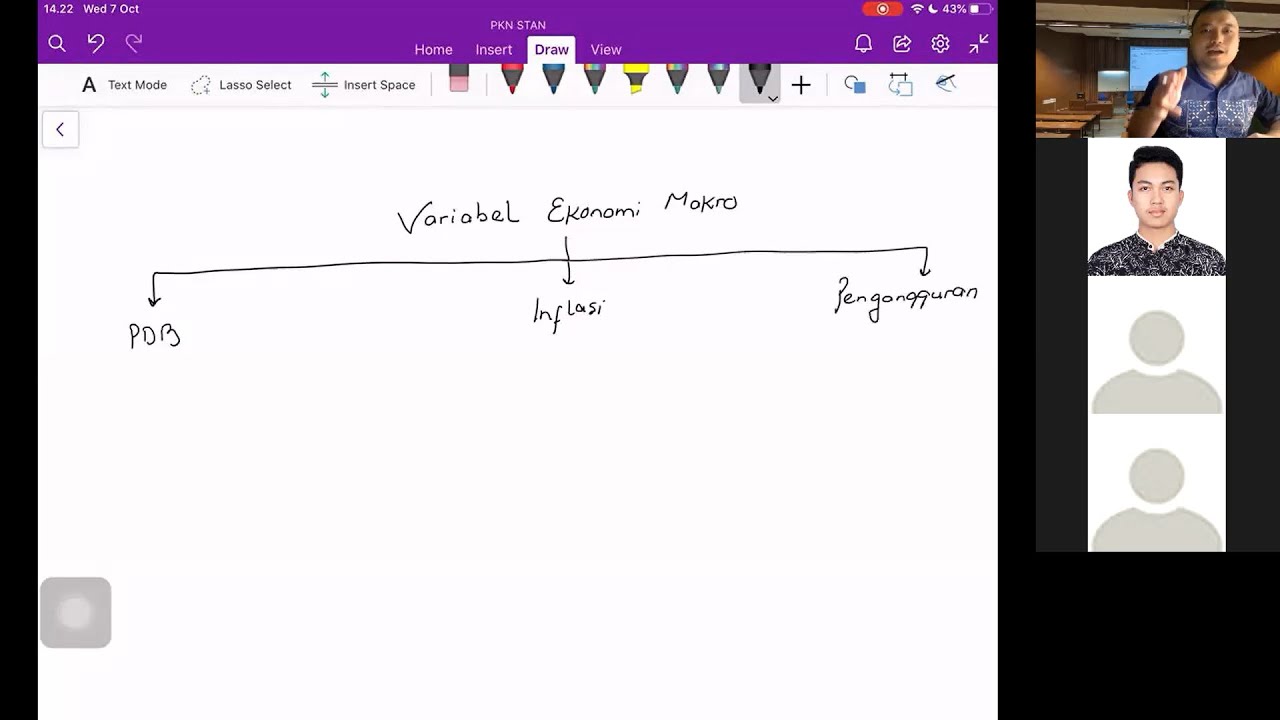 14.22 Wed 7 Oct
43%
PKN STAN
Home Insert Draw View
A Text Mode Lasso Select Insert Space
Variabel Ekonomi Makro
PDB
Inflasi
Pengangguran